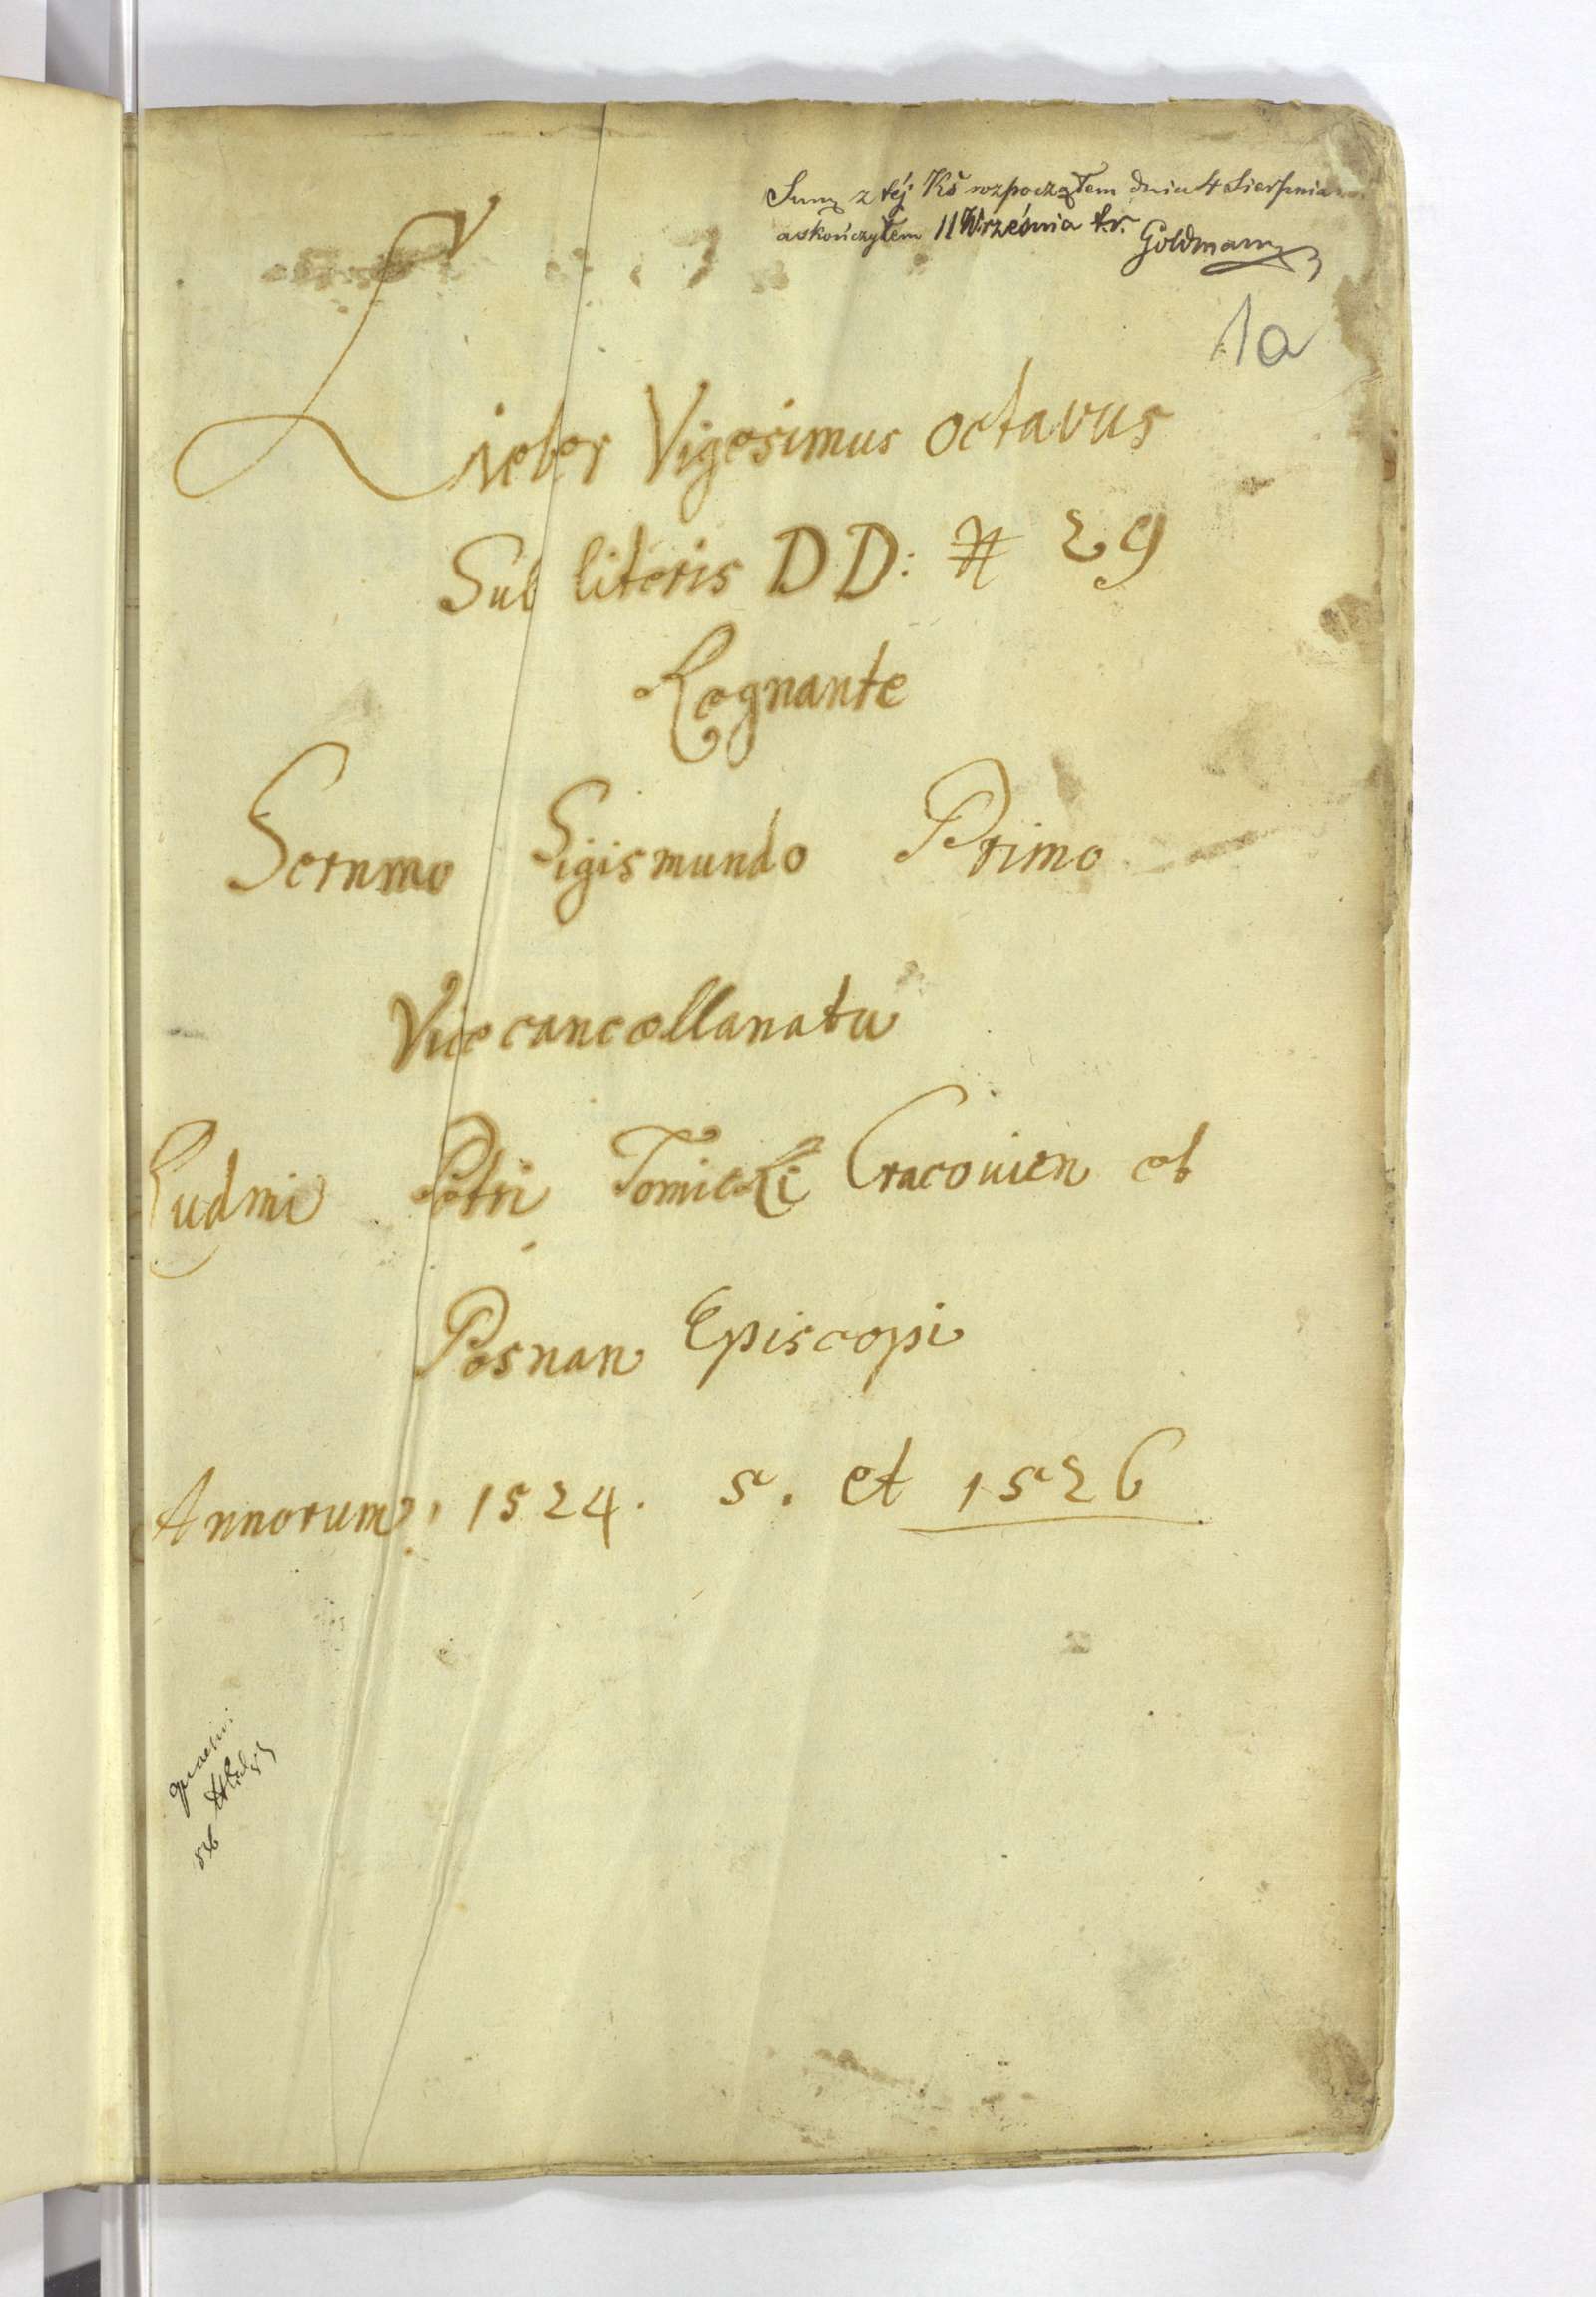 Sumę z téj Kś rozpocząłem dnia 4 Sierpnia
a skończyłem 11 Września t.r. Goldmann
1a
Lieber Vigesimus octavus
Sub literis DD: # 29
Regnante
Sernmo Sigismundo Primo
Vicecancellariatu
Rudmi Petri Tomicki Cracouien et
Posnan Episcopi
Annorum, 1524. 5. et 1526